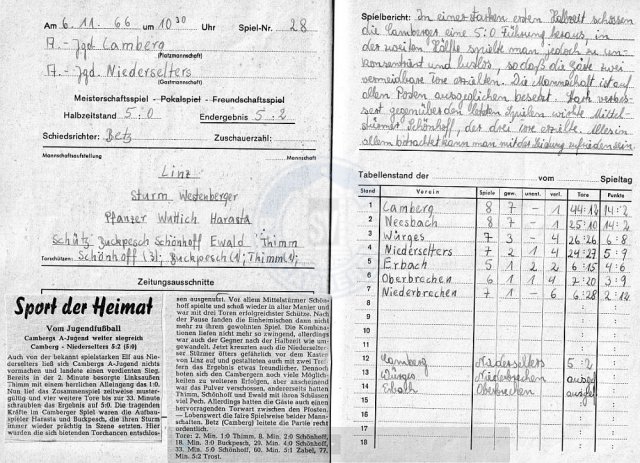 Am 6.11.66 um 10 30 Uhr Spiel-Nr. 28
A.-Jgd Camberg
(Platzmannschaft)
A.-Jgd. Niederselters
(Gastmannschaft)
Meisterschaftsspiel - Pokalspiel - Freundschaftsspiel
Halbzeitstand 5:0 Endergebnis 5:2
Schiedsrichter: Betz Zuschauerzahl:
Mannschaftsaufstellung Mannschaft
Linz
Sturm Westenberger
Pfanzer Wuttich Harasta
Schütz Buckpesch Schönhoff Ewald Thimm
Torschützen: Schönhoff (3); Buckpesch (1); Thimm (1);
Zeitungsausschnitte
Sport der Heimat
Vom Jugendfußball
Cambergs A-Jugend weiter siegreich
Camberg - Niederselters 5:2 (5:0)
Auch von der bekannt spielstarken Elf aus Nie-
derselters ließ sich Cambergs A-Jugend nichts
vormachen und landete einen verdienten Sieg.
Bereits in der 2. Minute besorgte Linksaußen
Thimm mit einem herrlichen Alleingang das 1:0.
Nun lief das Zusammenspiel zeitweise muster-
gültig und vier weitere Tore bis zur 33. Minute
schraubten das Ergebnis auf 5:0. Die tragenden
Kräfte im Camberger Spiel waren die Aufbau-
spieler Harasta und Buckpesch, die ihren Sturm
immer wieder prächtig in Szene setzten. Hier
wurden die sich bietenden Torchancen entschlos-
sen ausgenutzt. Vor allem Mittelstürmer Schön-
hoff spielte und schoß wieder in alter Manier und
war mit drei Toren erfolgreichster Schütze. Nach
der Pause fanden die Einheimischen dann nicht
mehr zu ihrem gewohnten Spiel. Die Kombina-
tionen liefen nicht mehr so zwingend, allerdings
war auch der Gegner nach der Halbzeit wie um-
gewandelt. Jetzt kreuzten auch die Niederselter-
ser Stürmer öfters gefährlich vor dem Kasten
von Linz auf und gestalteten auch mit zwei Tref-
fern das Ergebnis etwas freundlicher. Dennoch
boten sich den Cambergern noch viele Möglich-
keiten zu weiteren Erfolgen, aber anscheinend
war das Pulver verschossen, andererseits hatten
Thimm, Schönhoff und Ewald mit ihren Schüssen
viel Pech. Allerdings hatten die Gäste auch einen
hervorragenden Torwart zwischen den Pfosten.
- Lobenswert die faire Spielweise beider Mann-
schaften. Betz (Camberg) leitete die Partie recht
ordentlich.
Tore: 2. Min. 1:0 Thimm, 8. Min. 2:0 Schönhoff,
18. Min. 3:0 Buckpesch, 29. Min. 4:0 Schönhoff,
33. Min. 5:0 Schönhoff, 60. Min. 5:1 Zabel, 77.
Min. 5:2 Trost.
Spielbericht: In einer starken ersten Halbzeit schossen
die Camberger eine 5:0 Führung heraus, in
der zweiten Hälfte spielte man jedoch zu un-
konzentriert und lustlos, so daß die Gäste zwei
vermeidbare Tore erzielten. Die Mannschaft ist auf
allen Posten ausgeglichen besetzt. Stark verbes-
sert gegenüber den letzten Spielen wirkte Mittel-
stürmer Schönhoff, der drei Tore erzielte. Alles in
allem betrachtet kann man mit der Leistung zufrieden sein.
Tabellenstand der vom Spieltag
Stand Verein Spiele gew. unent. verl. Tore Punkte
1 Camberg 8 7 - 1 44:14 14:2
2 Neesbach 8 7 - 1 25:10 14:2
3 Würges 7 3 - 4 26:26 6:8
4 Niederselters 7 2 1 4 24:27 5:9
5 Erbach 5 1 2 2 6:15 4:6
6 Oberbrechen 6 1 1 4 7:20 3:9
7 Niederbrechen 7 1 - 6 6:28 2:12
8
9
10
11
12 Camberg Niederselters 5:2
13 Würges Niederbrechen ausgef.
14 Erbach Oberbrechen ausgef.
15
16
17
18